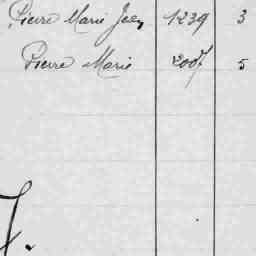 Pierre Marie Jean 1239 3
Pierre Marie 2007 5